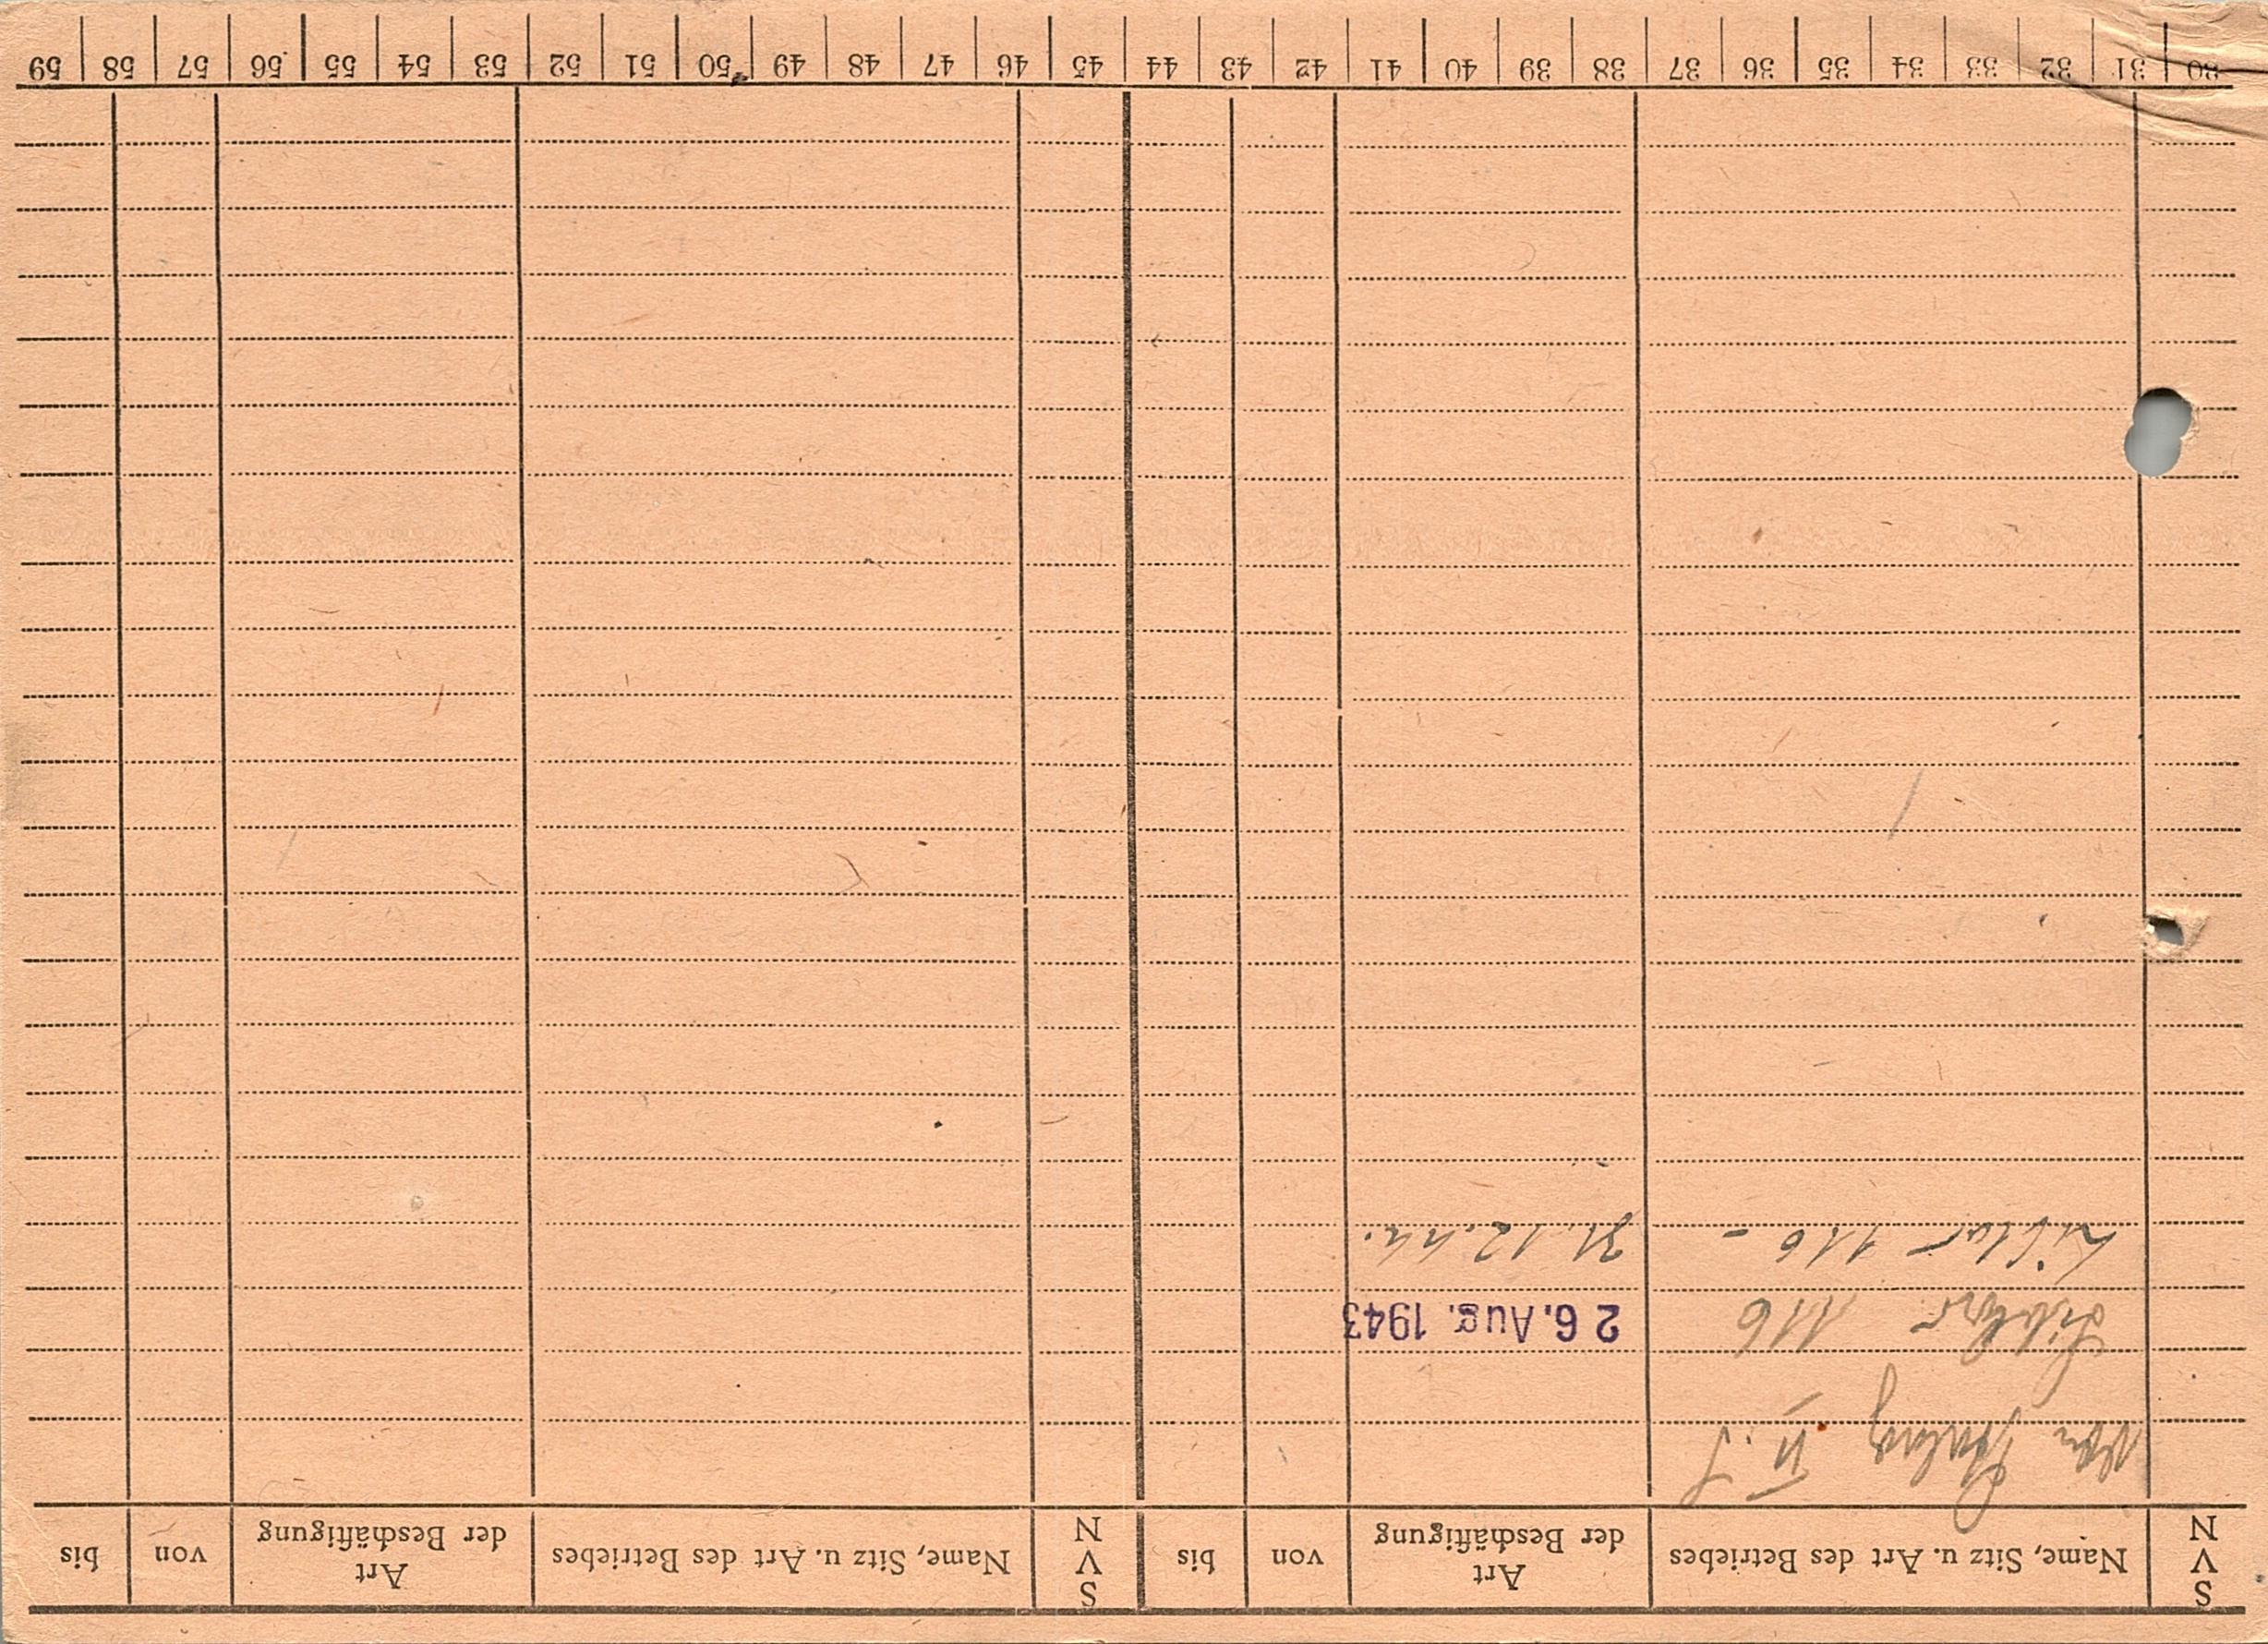 S V N Name, Sitz u. Art des Betriebes Art der Beschäftigung von bis S V N Name, Sitz u. Art des Betriebes Art der Beschäftigung von bis
von Stalag
Liblar 116 26. Aug. 1943
Liblar 116 - 31.12.44.
30 31 32 33 34 35 36 37 38 39 40 41 42 43 44 45 46 47 48 49 50 51 52 53 54 55 56 57 58 59